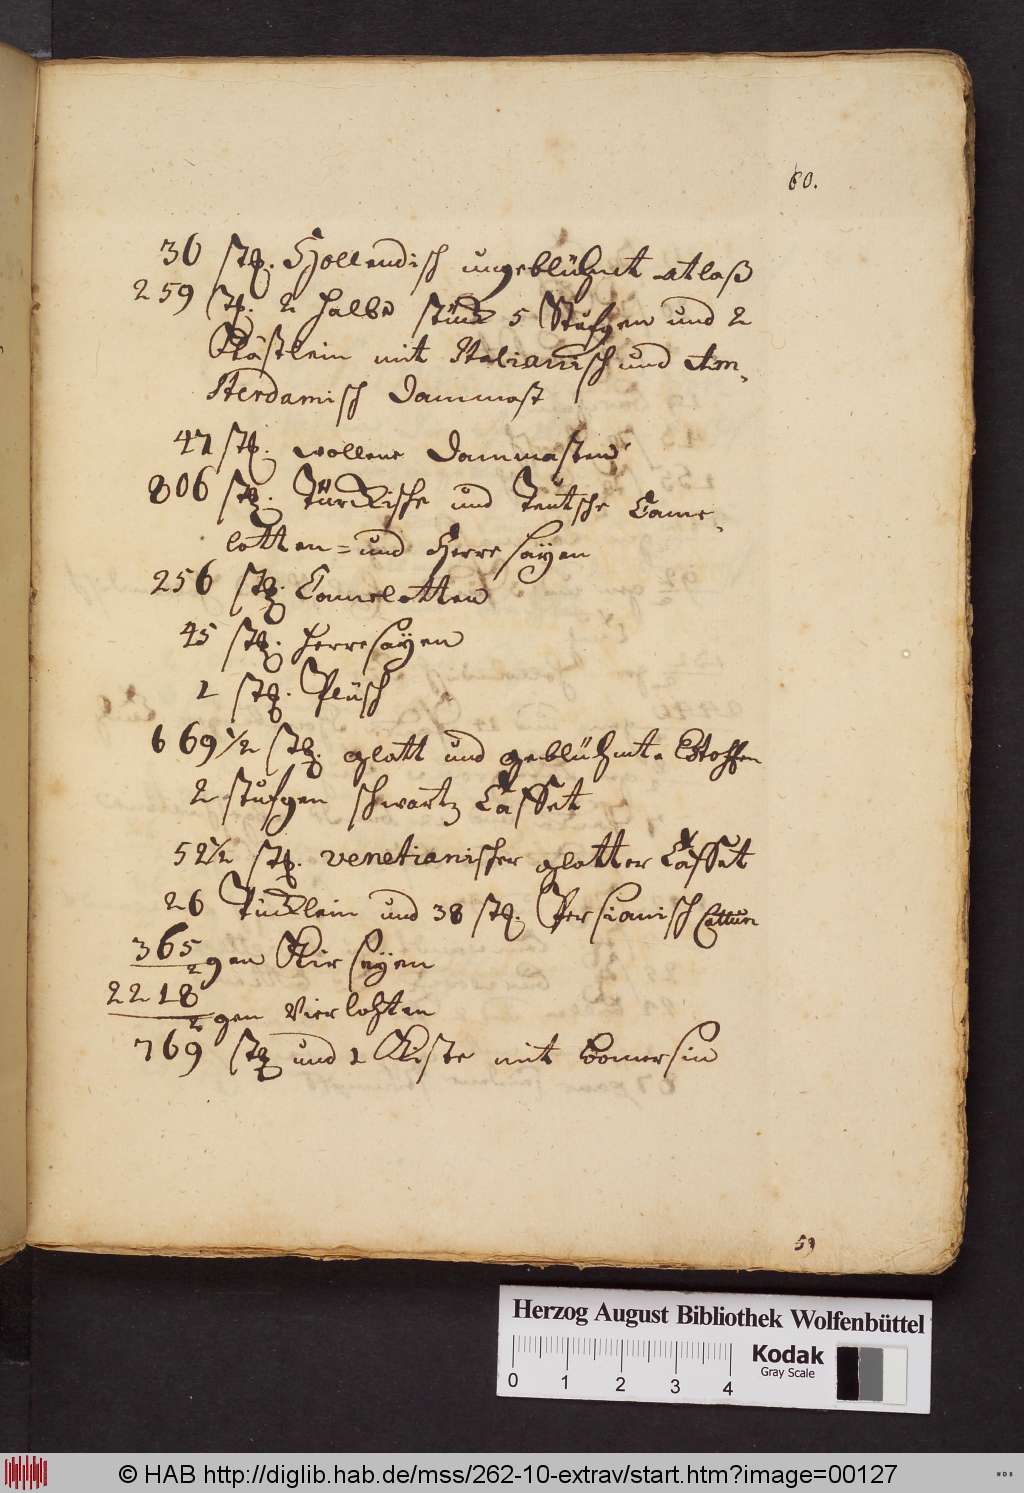 60.
30 stk. Hollendisch ungeblühmt atlaß
259 st. 2 halbe stück 5 Stufgen und 2
Kästlein mit Italianisch und Am-
sterdamisch Dammast
47 stk. wollene Dammasten
806 stk. Türckische und Teutsche Came-
lotten= und Herre sayen
256 stk. Camelotten
45 stk. herresayen
1 stk. Plüsch
669 1/2 stk. glatt und geblühmte Stoffen
2 stufgen schwartz Taffet
52 1/2 stk. venetianischer glatter Taffet
26 Stücklein und 38 stk. Persianisch Cattun
365/2 gen Kirseyen
2218/2 gen Vierlohten
769 stk und 1 Kiste mit Bomersin
59
Herzog August Bibliothek Wolfenbüttel
Kodak
Gray Scale
0 1 2 3 4
© HAB http://diglib.hab.de/mss/262-10-extrav/start.htm?image=00127